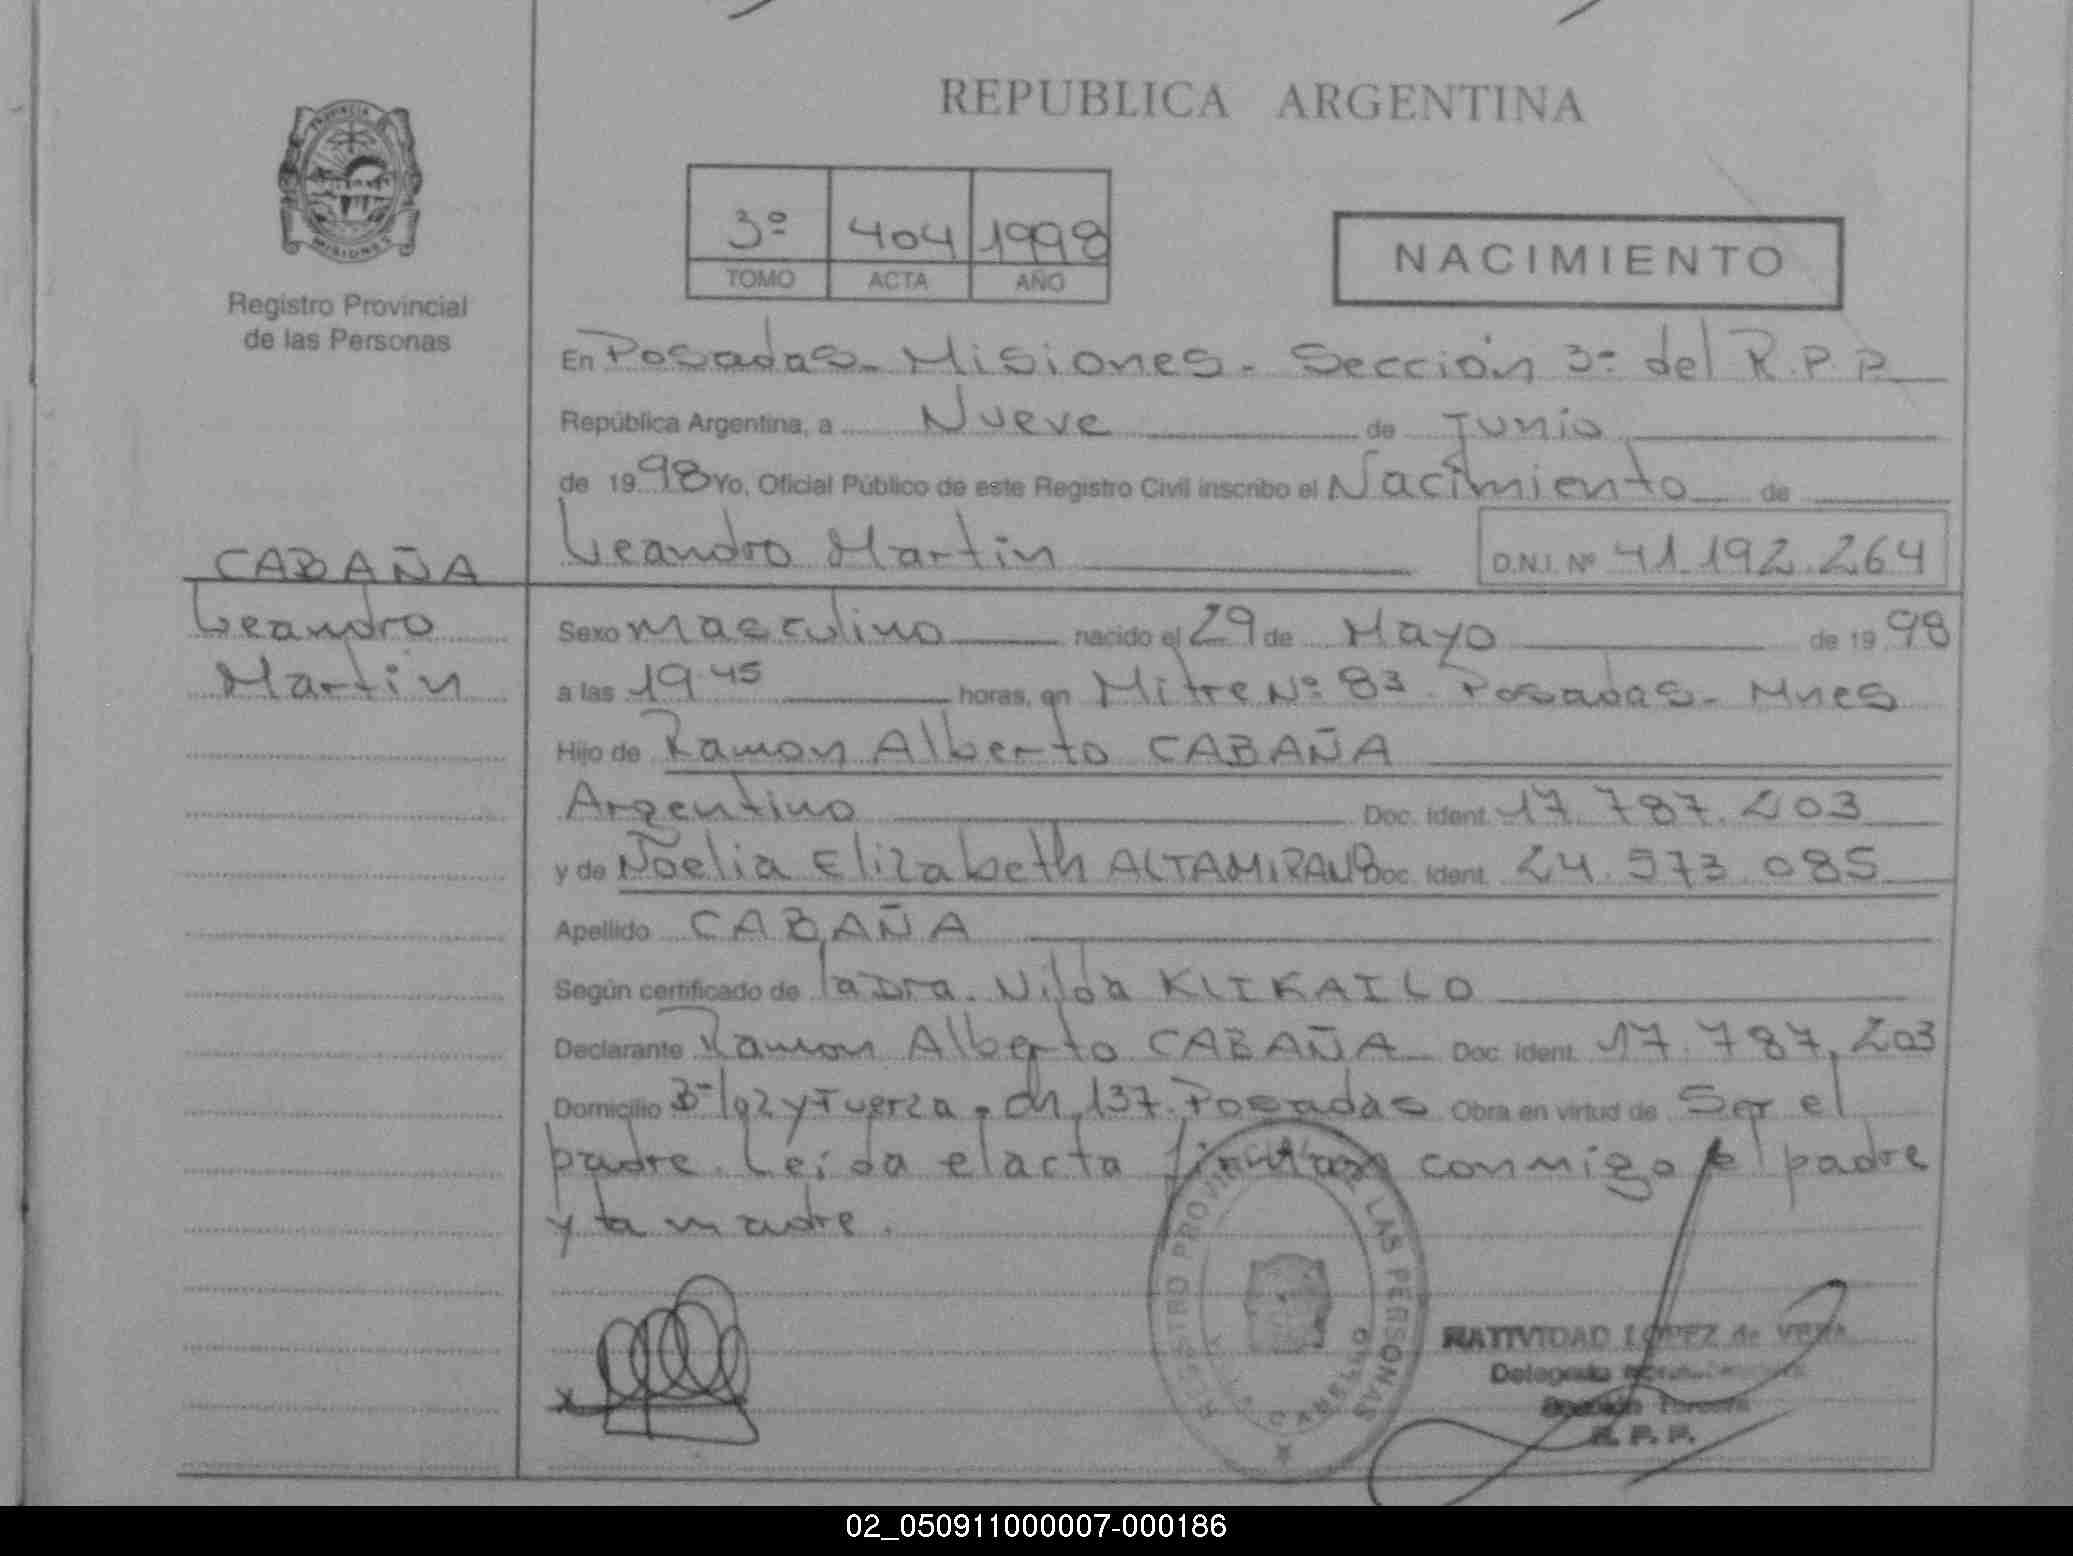 REPUBLICA ARGENTINA
PROVINCIA
MISIONES
Registro Provincial
de las Personas
3º 404 1998
TOMO ACTA AÑO
NACIMIENTO
En Posadas - Misiones - Sección 3º del R.P.P.
República Argentina, a Nueve de Junio
de 1998 Yo, Oficial Público de este Registro Civil inscribo el Nacimiento de
Leandro Martin
D.N.I. Nº 41.192.264
CABAÑA
Leandro
Martin
Sexo masculino nacido el 29 de Mayo de 1998
a las 19.45 horas, en Mitre Nº 83. Posadas - Mnes
Hijo de Ramon Alberto CABAÑA
Argentino Doc. Ident. 17.787.203
y de Noelia Elizabeth ALTAMIRANO Doc. Ident. 24.573.085
Apellido CABAÑA
Según certificado de la Dra. Nilda KLIKAILO
Declarante Ramon Alberto CABAÑA Doc. Ident. 17.787.203
Domicilio Bº luz y Fuerza. ch. 137. Posadas Obra en virtud de Ser el
padre. Leída el acta firman conmigo el padre
y la madre.
REGISTRO PROVINCIAL DE LAS PERSONAS
CABELLO
NATIVIDAD LOPEZ de VERA
Delegada
Sección Tercera
R. P. P.
02_050911000007-000186